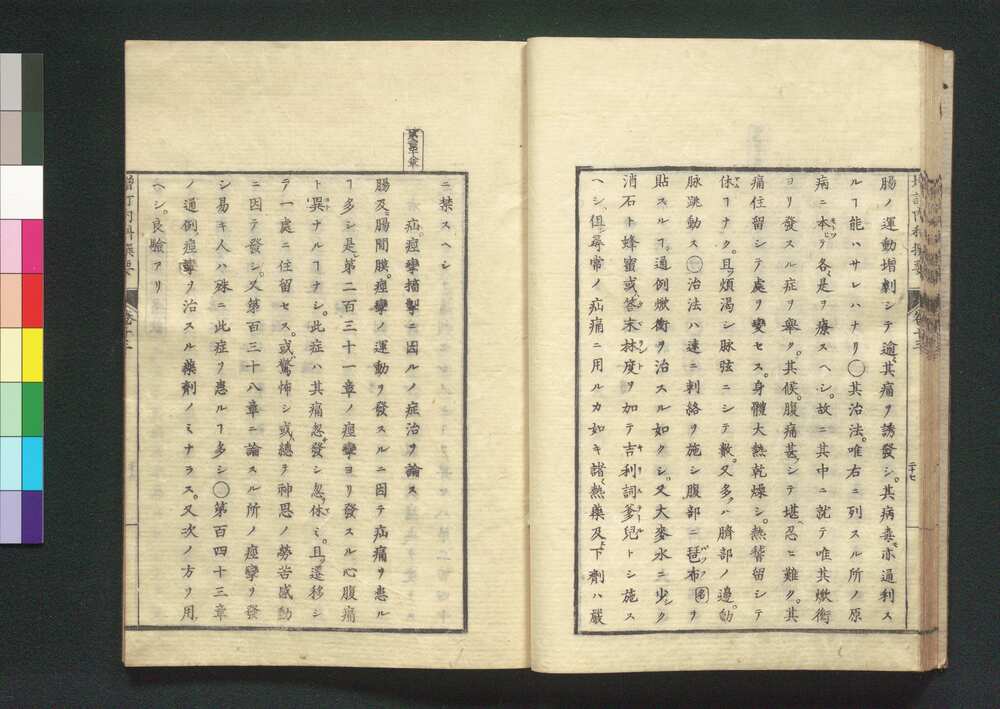 腸ノ運動增劇シテ逾其痛ヲ誘發シ。其病毒亦通利ス
ルヿ能ハサレハナリ◯其治法。唯右ニ列スル所ノ原
病ニ本ヲ各是ヲ療スヘシ。故ニ其中ニ就テ唯其焮衝
ヨリ發スル症ヲ擧ク。其候。腹痛甚シテ堪忍ヒ難ク。其
痛住留シテ處ヲ變セス。身體大熱乾燥シ。熱瞀留シテ
休ムヿナク。且煩渇シ脉弦ニシテ數。又多ハ臍部ノ邊。動
脉跳動ス◯治法ハ速ニ刺絡ヲ施シ腹部ニ琶布ヲ
貼スルヿ。通例焮衝ヲ治スル如クシ。又大麥水ニ少ク
消石ト蜂蜜或答末林度ヲ加テ吉利詞爹兒トシ施ス
ヘシ。但尋常ノ疝痛ニ用ルカ如キ諸熱藥及下劑ハ嚴
增訂內科撰要
卷十三
二十七
ニ禁スヘシ
疝痙攣搐掣ニ因ルノ症治ヲ論ス
腸及腸間膜。痙攣ノ運動ヲ發スルニ因テ疝痛ヲ患ル
ヿ多シ是第二百三十一章ノ痙攣ヨリ發スル心腹痛
ト異ナルヿナシ。此症ハ其痛忽發シ忽休ミ。且遷移シ
テ一處ニ住留セス。或驚怖シ或總テ神思ノ勞苦感動
ニ因テ發シ。又第百三十八章ニ論スル所ノ痙攣ヲ發
シ易キ人ハ殊ニ此症ヲ患ルヿ多シ◯第百四十三章
ノ通例痙攣ヲ治スル藥劑ノミナラス。又次ノ方ヲ用
ヘシ。良驗アリ
增訂內科撰要
卷十三